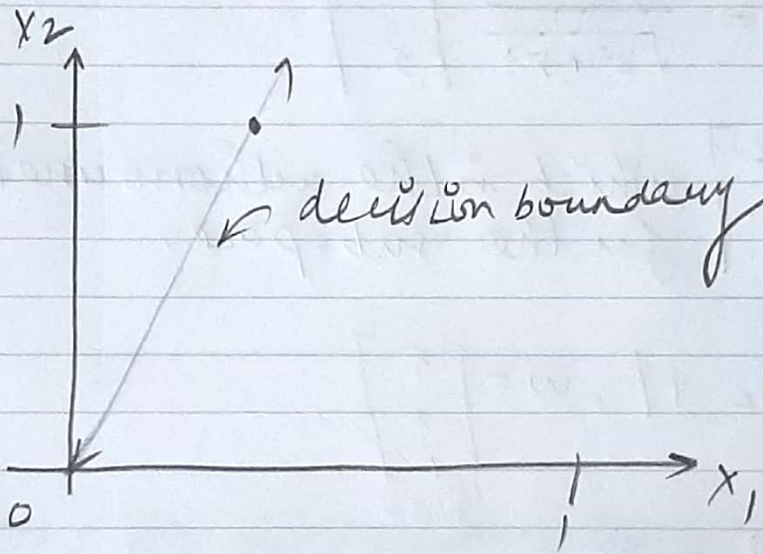 X2
1
decision boundary
0
1
X1